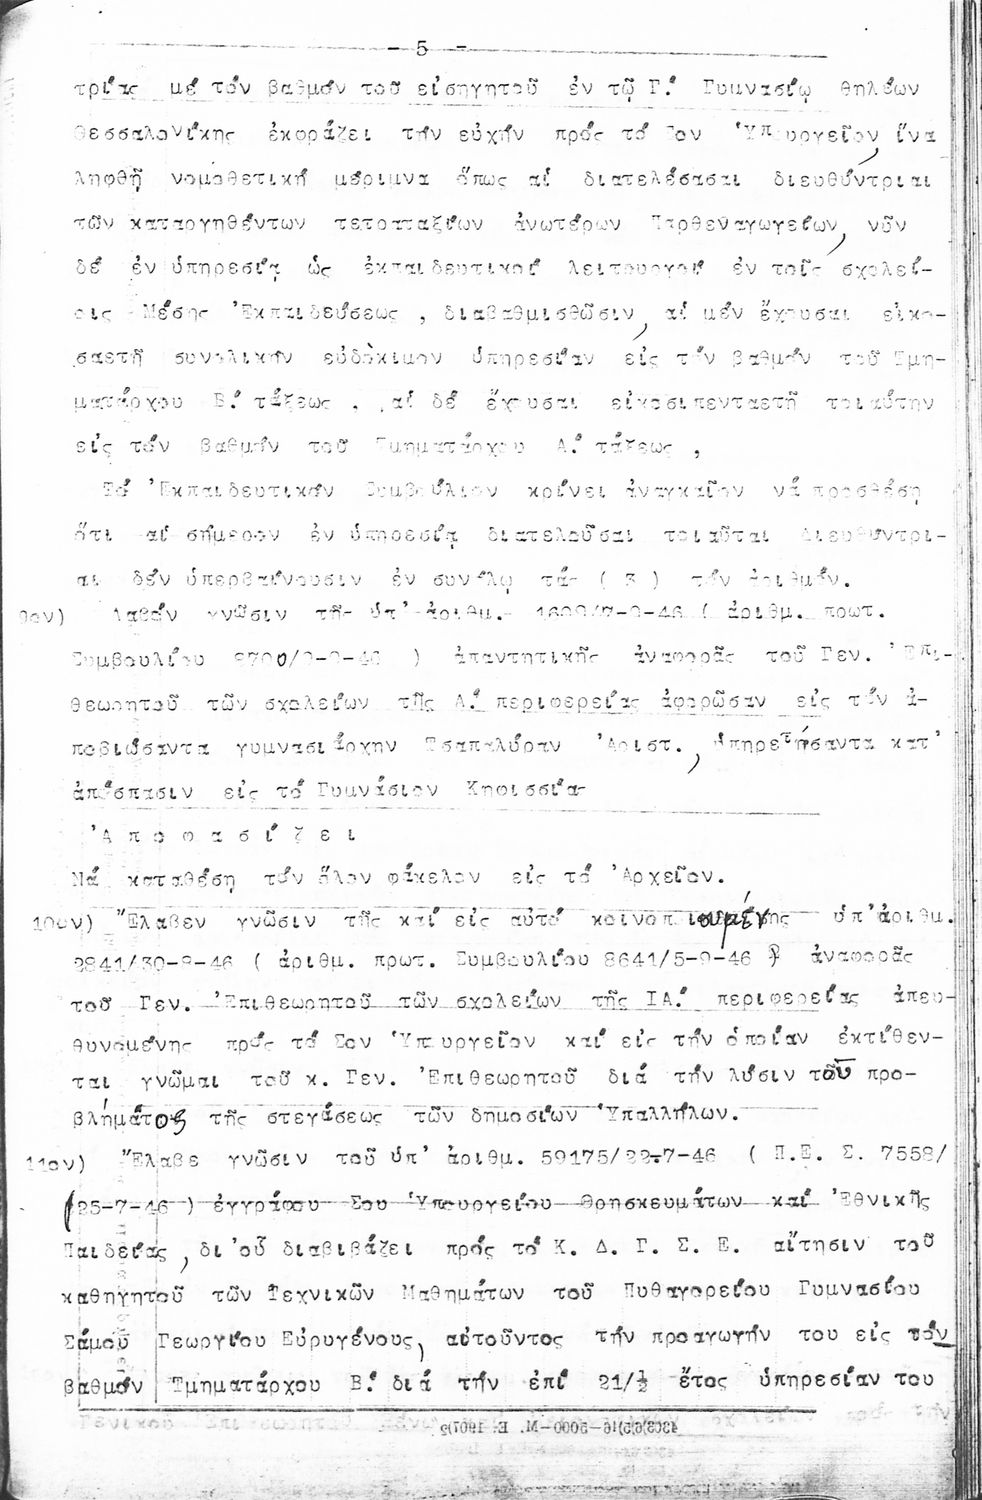 - 5 -
τρίας μέ τόν βαθμόν τοῦ εἰσηγητοῦ ἐν τῷ Γ.΄ Γυμνασίῳ θηλέων
Θεσσαλονίκης ἐκφράζει τήν εὐχήν πρός τό Σον Ὑπουργεῖον, ἵνα
ληφθῇ νομοθετική μέριμνα ὅπως αἱ διατελέσασαι διευθύντριαι
τῶν καταργηθέντων τετραταξίων ἀνωτέρων Παρθεναγωγείων, νῦν
δέ ἐν ὑπηρεσίᾳ ὡς ἐκπαιδευτικοί λειτουργοί ἐν τοῖς σχολεί-
οις Μέσης Ἐκπαιδεύσεως , διαβαθμισθῶσιν, αἱ μέν ἔχουσαι εἰκο-
σαετῆ συνολικήν εὐδόκιμον ὑπηρεσίαν εἰς τόν βαθμόν τοῦ Τμη-
ματάρχου Β.΄ τάξεως , αἱ δέ ἔχουσαι εἰκοσιπενταετῆ τοιαύτην
εἰς τόν βαθμόν τοῦ Τμηματάρχου Α.΄ τάξεως ,
Τό Ἐκπαιδευτικόν Συμβούλιον κρίνει ἀναγκαῖον νά προσθέσῃ
ὅτι αἱ σήμερον ἐν ὑπηρεσίᾳ διατελοῦσαι τοιαῦται Διευθύντρι-
αι δέν ὑπερβαίνουσιν ἐν συνόλῳ τάς ( 3 ) τόν ἀριθμόν.
9ον) Λαβόν γνῶσιν τῆς ὑπ' ἀριθμ. ( ἀριθμ. πρωτ.
Συμβουλίου ) ἀπαντητικῆς ἀναφορᾶς τοῦ Γεν. Ἐπι-
θεωρητοῦ τῶν σχολείων τῆς Α.΄ περιφερείας ἀφορῶσαν εἰς τόν ἀ-
ποβιώσαντα γυμνασιάρχην Τσαπαλύραν Ἀριστ., ὑπηρετήσαντα κατ'
ἀπόσπασιν εἰς τό Γυμνάσιον Κηφισσίας
Ἀ π ο φ α σ ί ζ ε ι
Νά καταθέσῃ τόν ὅλον φάκελον εἰς τό Ἀρχεῖον.
10ον) Ἔλαβεν γνῶσιν τῆς καί εἰς αὐτό κοινοποιουμένης ὑπ' ἀριθμ.
2841/30-8-46 ( ἀριθμ. πρωτ. Συμβουλίου 8641/5-9-46 ) ἀναφορᾶς
τοῦ Γεν. Ἐπιθεωρητοῦ τῶν σχολείων τῆς ΙΑ.΄ περιφερείας ἀπευ-
θυνομένης πρός τό Σον Ὑπουργεῖον καί εἰς τήν ὁποίαν ἐκτίθεν-
ται γνῶμαι τοῦ κ. Γεν. Ἐπιθεωρητοῦ διά τήν λύσιν τοῦ προ-
βλήματος τῆς στεγάσεως τῶν δημοσίων Ὑπαλλήλων.
11ον) Ἔλαβε γνῶσιν τοῦ ὑπ' ἀριθμ. 59175/22-7-46 ( Π.Ε. Σ. 7558/
(25-7-46 ) ἐγγράφου Σου Ὑπουργείου Θρησκευμάτων καί Ἐθνικῆς
Παιδείας, δι' οὗ διαβιβάζει πρός τό Κ. Δ. Γ. Σ. Ε. αἴτησιν τοῦ
καθηγητοῦ τῶν Τεχνικῶν Μαθημάτων τοῦ Πυθαγορείου Γυμνασίου
Σάμου Γεωργίου Εὐρυγένους, αἰτοῦντος τήν προαγωγήν του εἰς τόν
βαθμόν Τμηματάρχου Β.΄ διά τήν ἐπί 21/½ ἔτος ὑπηρεσίαν του